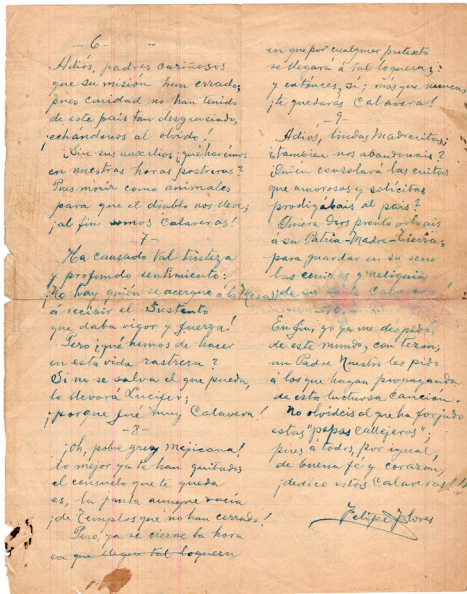 - 6 -
Adiós, padres cariñosos
que su misión han errado;
pues caridad no han tenido
de este país tan desgraciado,
¡echándonos al olvido!
¡Sin sus auxilios, ¿qué haremos
en nuestras horas postreras?
Pues morir como animales
para que el diablo nos lleve,
¡al fin somos Calaveras!
- 7 -
Ha causado tal tristeza
y profundo sentimiento:
¡No hay quién se acerque á la Mesa
á recibir el Sustento
que daba vigor y fuerza!
Pero ¡qué hemos de hacer
en esta vida rastrera?
Si no se salva el que pueda,
lo llevará Lucifer;
¡porque fué muy Calavera!
- 8 -
¡Oh, pobre grey Mejicana!
lo mejor ya te han quitado;
el consuelo que te queda
es, la jaula aunque vacía
¡de Templos que no han cerrado!
Pero, ya se cierne la hora
en que llegue tal loquera
en que por cualquier pretexto
se llegará á tal loquera;
y entónces, sí, más que nunca,
¡te quedarás Calavera!
- 9 -
Adios, lindas Madrecitas;
¿tambien nos abandonais?
¿Quien consolará las cuitas
que amorosas y solícitas
prodigábais al país?
Quiera Dios pronto volvais
á su Patria-Madre-Tierra;
para guardar en su seno
las cenizas y reliquia
de su Calavera!
En fin, yo ya me despido
de este mundo, con tezon;
un Padre Nuestro les pido
á los que hagan propaganda
de esta luctuosa Canción.
No olvideis al que ha forjado
estas "papas callejeras";
pues á todos, por igual,
de buena fe y corazon,
¡dedico estas Calaveras!!!
Felipe Flores